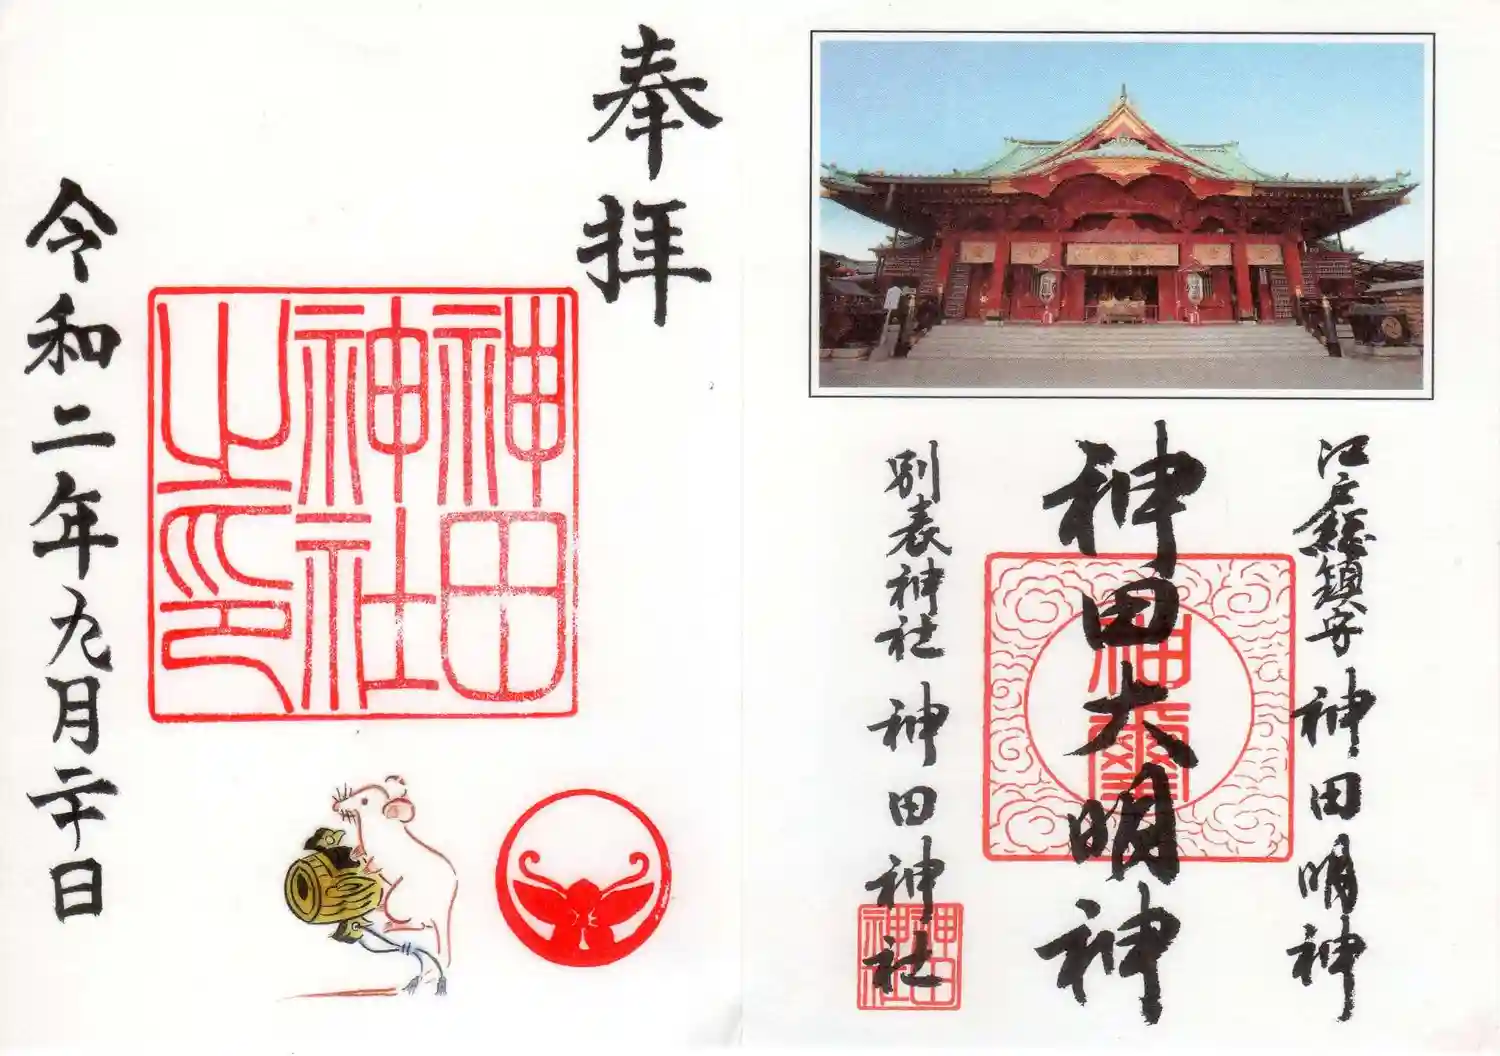 江戸総鎮守 神田明神
神田大明神
神璽
別表神社 神田神社
神田神社
奉拝
神田神社之印
令和二年九月二十日